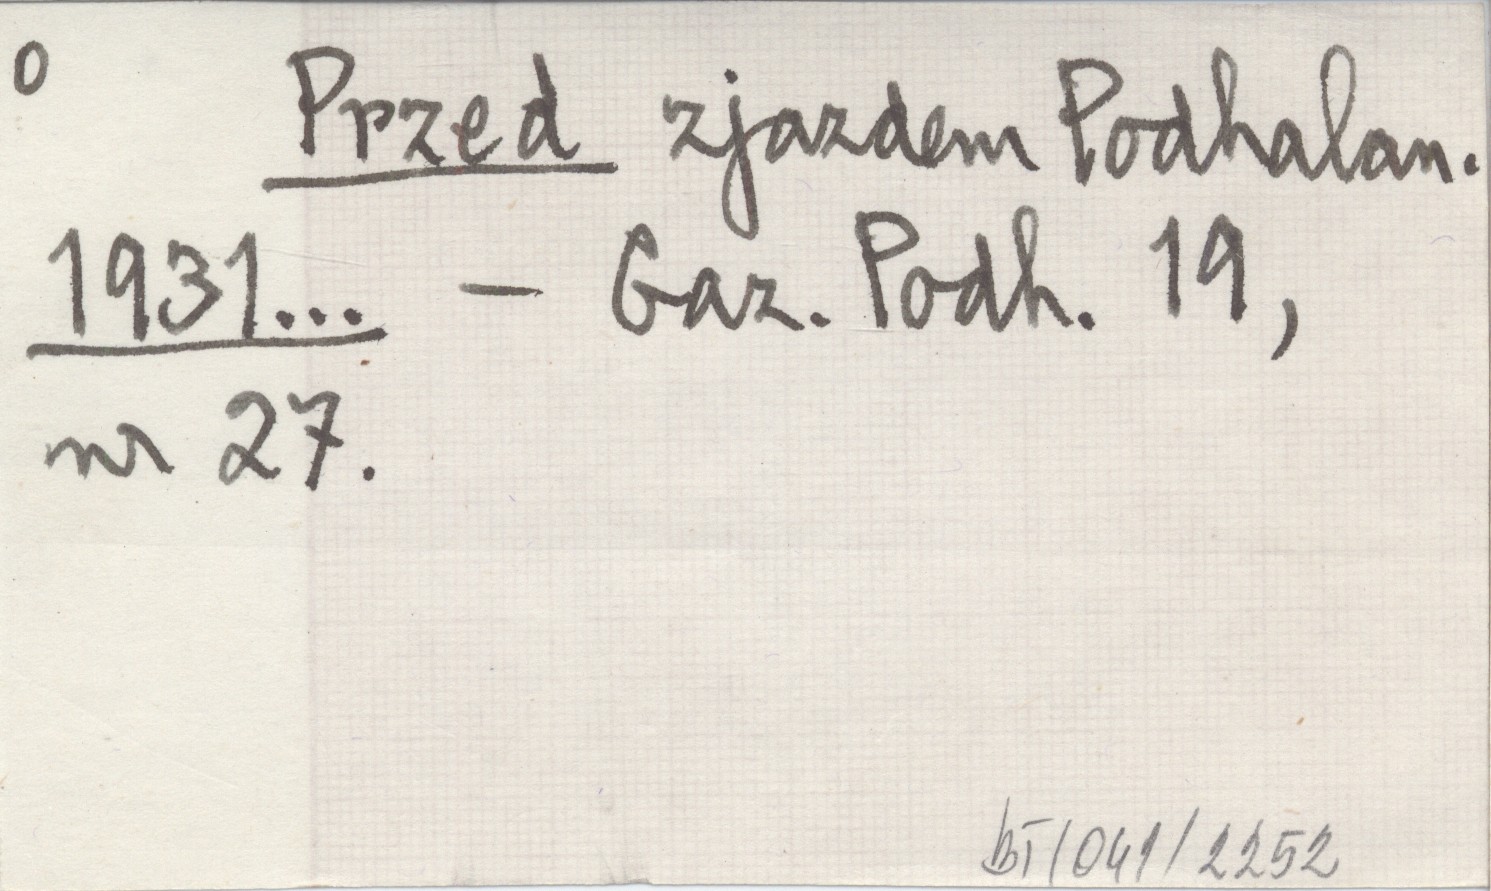 0 Przed zjazdem Podhalan.
1931... – Gaz. Podh. 19,
nr 27.
bT/041/2252